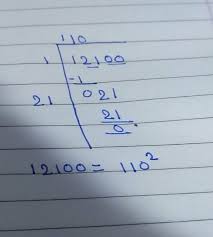 110
1 12100
-1
21 021
21
0
12100 = 110²